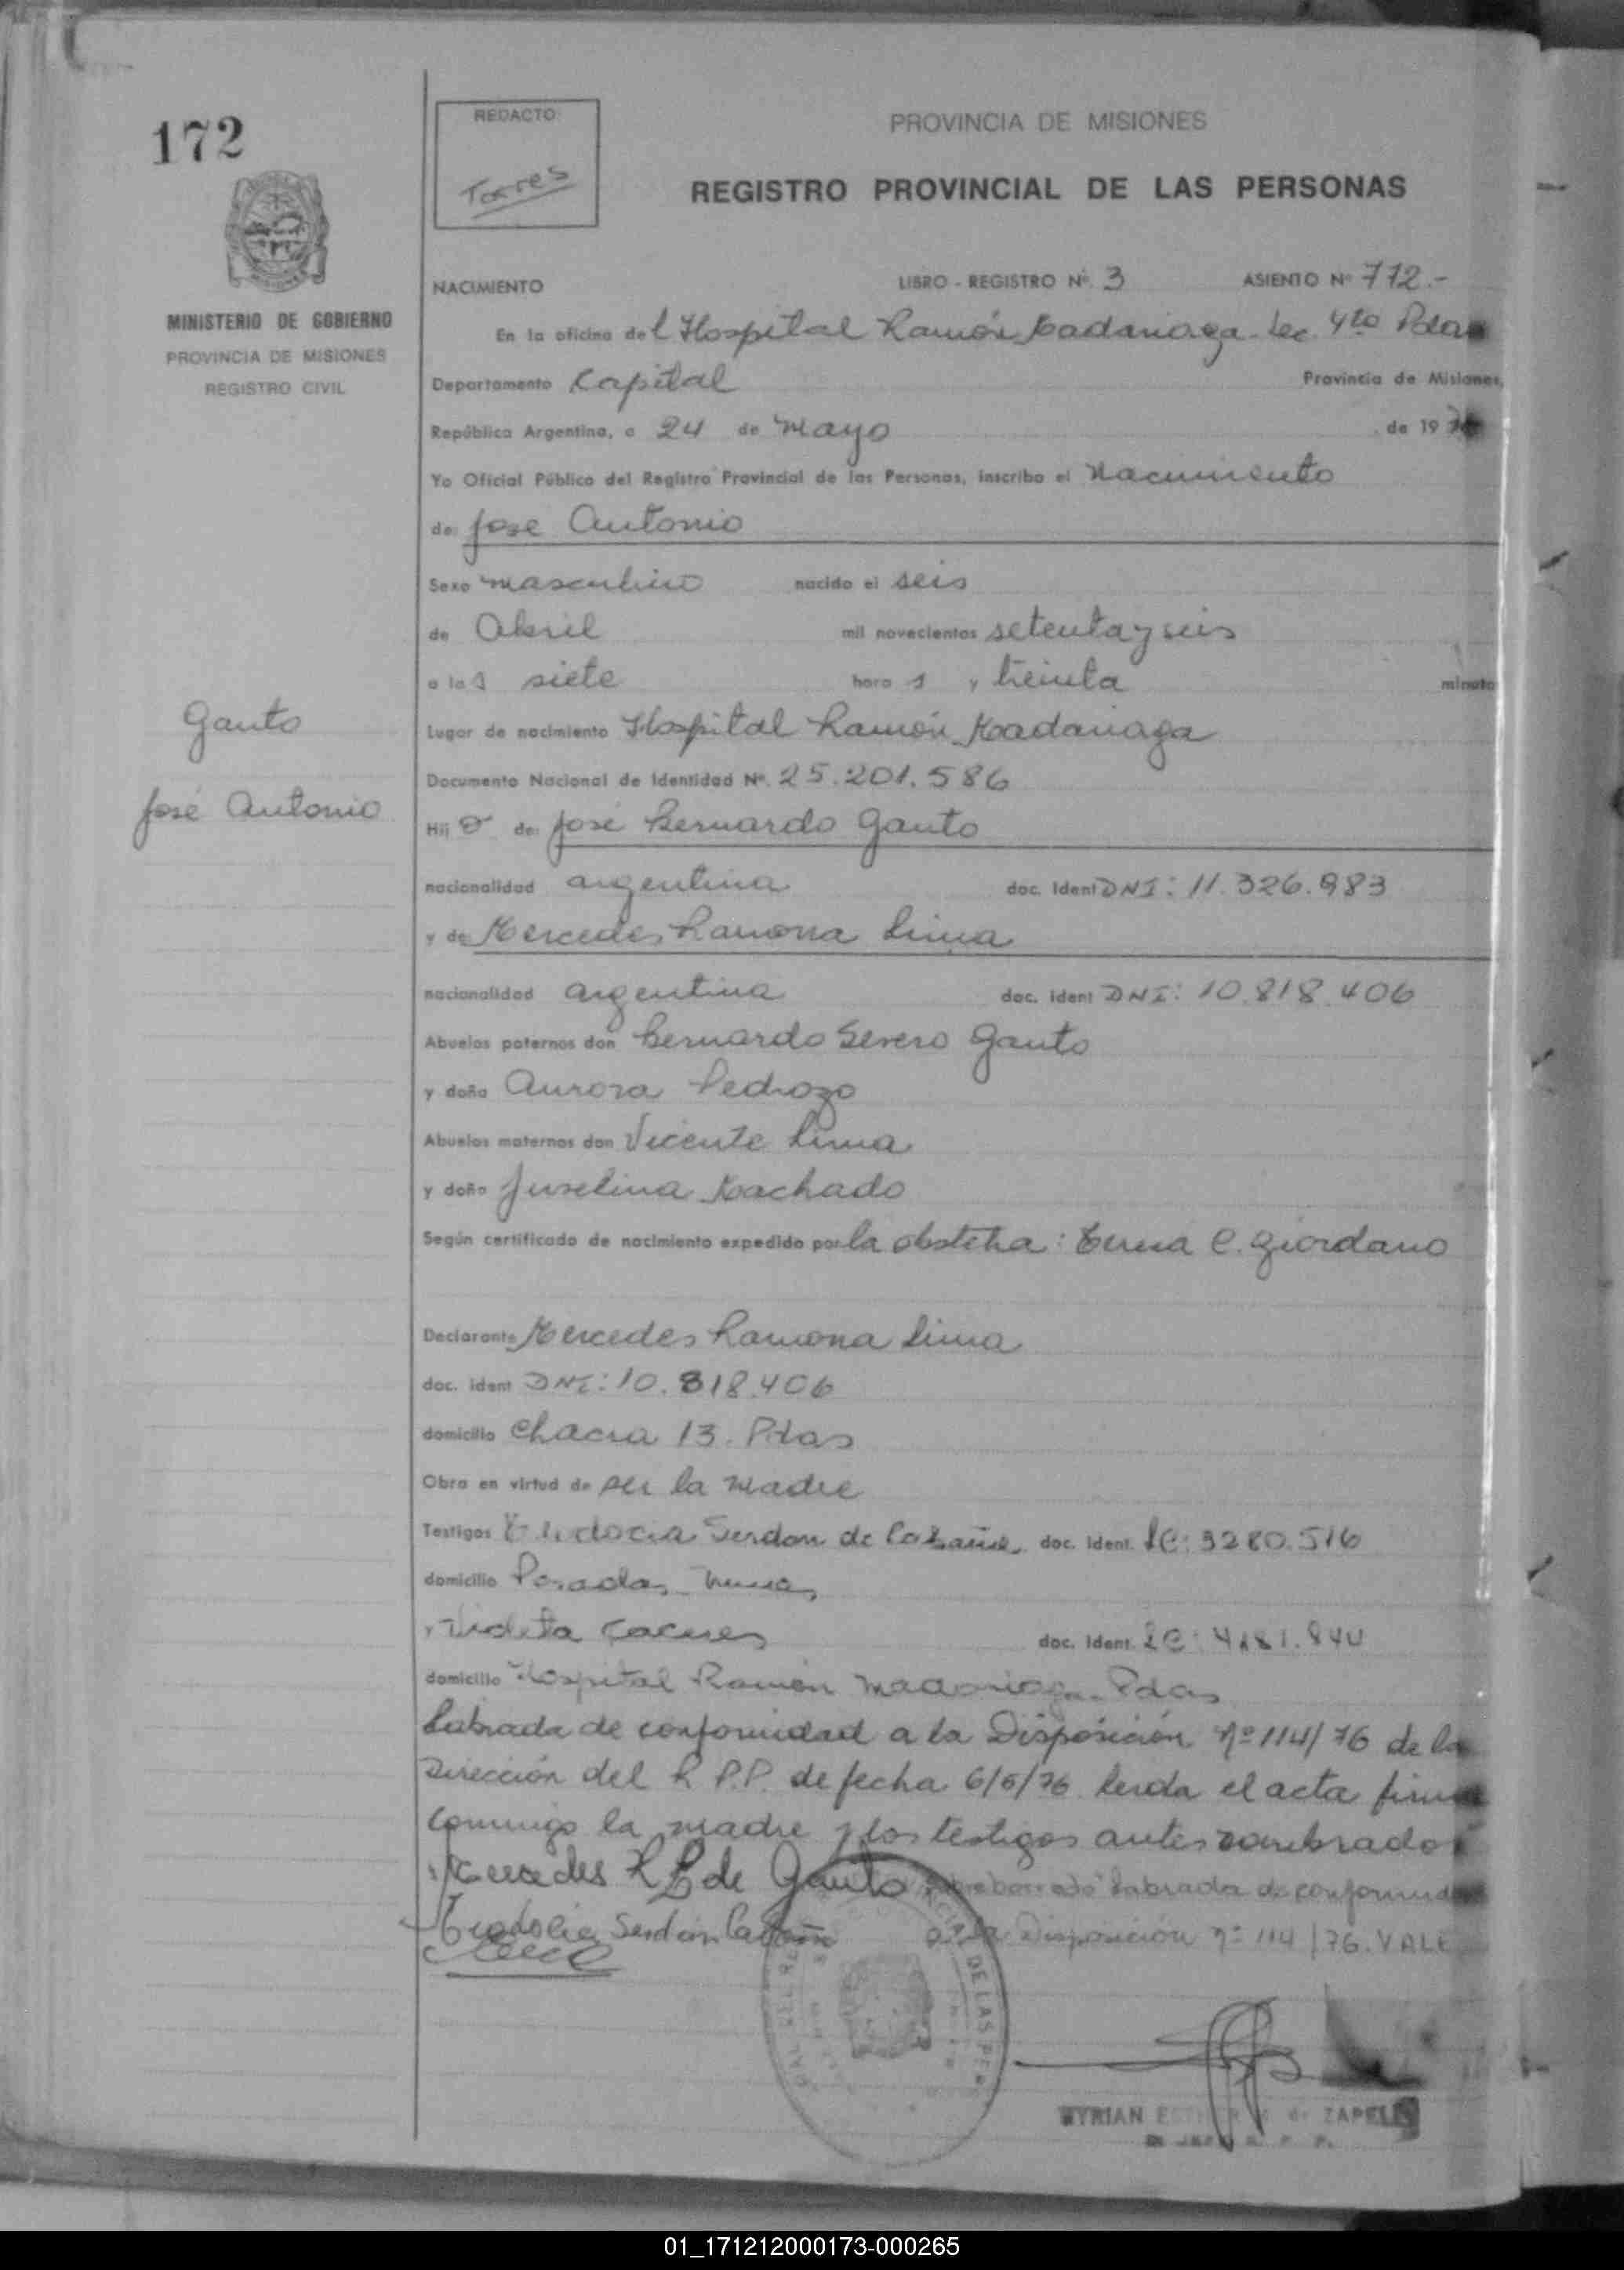 172
REDACTO
Torres
PROVINCIA DE MISIONES
REGISTRO PROVINCIAL DE LAS PERSONAS
MINISTERIO DE GOBIERNO
PROVINCIA DE MISIONES
REGISTRO CIVIL
NACIMIENTO LIBRO - REGISTRO Nº 3 ASIENTO Nº 772.-
En la oficina del Hospital Ramón Madariaga - Sec. 4ta Pdas
Departamento Capital Provincia de Misiones,
República Argentina, a 24 de Mayo de 1976
Yo Oficial Público del Registro Provincial de las Personas, inscribo el Nacimiento
de: Jose Antonio
Sexo masculino nacido el seis
de Abril mil novecientos setenta y seis
a las siete horas y treinta minuto
Gauto
José Antonio
Lugar de nacimiento Hospital Ramón Madariaga
Documento Nacional de Identidad Nº. 25.201.586
Hijo de: José Bernardo Gauto
nacionalidad argentina doc. Ident DNI: 11.326.983
y de Mercedes Ramona Lima
nacionalidad argentina doc. Ident DNI: 10.818.406
Abuelos paternos don Bernardo Severo Gauto
y doña Aurora Pedrozo
Abuelos maternos don Vicente Lima
y doña Juselina Machado
Según certificado de nacimiento expedido por la obstetra: Erma C. Giordano
Declarante Mercedes Ramona Lima
doc. ident DNI: 10.818.406
domicilio Chacra 13. Pdas
Obra en virtud de ser la madre
Testigos Serdan de doc. Ident. LC: 3280.516
domicilio Posadas
y Violeta Caceres doc. Ident. LC: 4181.840
domicilio Hospital Ramón Madariaga - Pdas
Labrada de conformidad a la Disposición Nº 114/76 de la
Dirección del R.P.P. de fecha 6/5/76 leida el acta firma
conmigo la madre y los testigos antes nombrados
Mercedes R L de Gauto Sobreborrado "Labrada de conformidad
Serdan a la Disposición nº 114/76. VALE
DE LAS PER
MYRIAN ZAPELLI
01_171212000173-000265